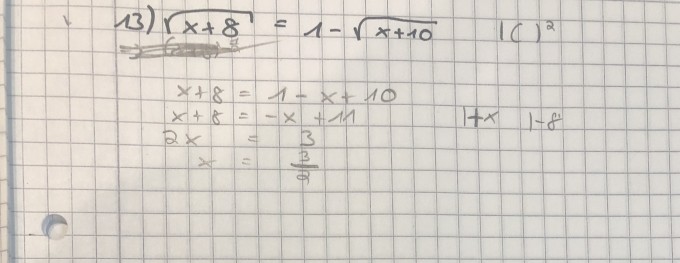 13) √(x+8) = 1 - √(x+10) |( )²
x+8 = 1 - x + 10
x+8 = -x + 11 |+x |-8
2x = 3
x = 3/2